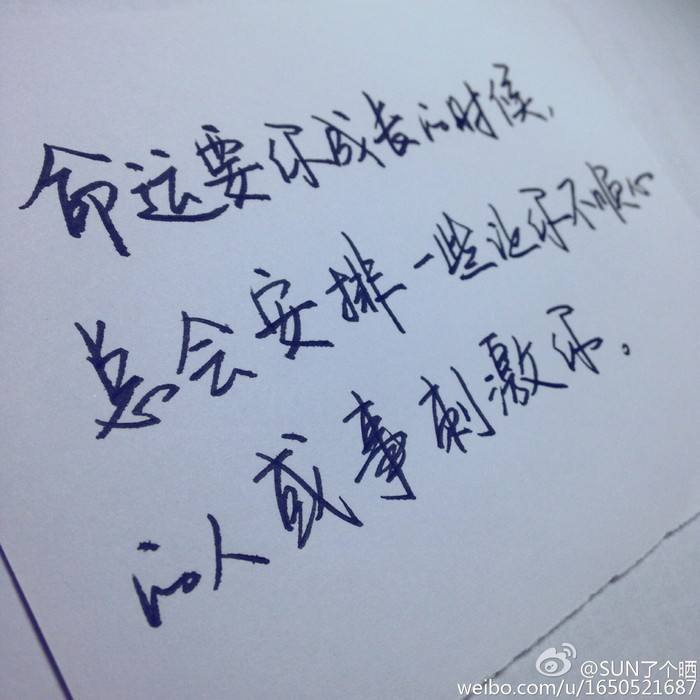 命运要你成长的时候，
总会安排一些让你不顺心
的人或事刺激你。
@SUN了个晒
weibo.com/u/1650521687